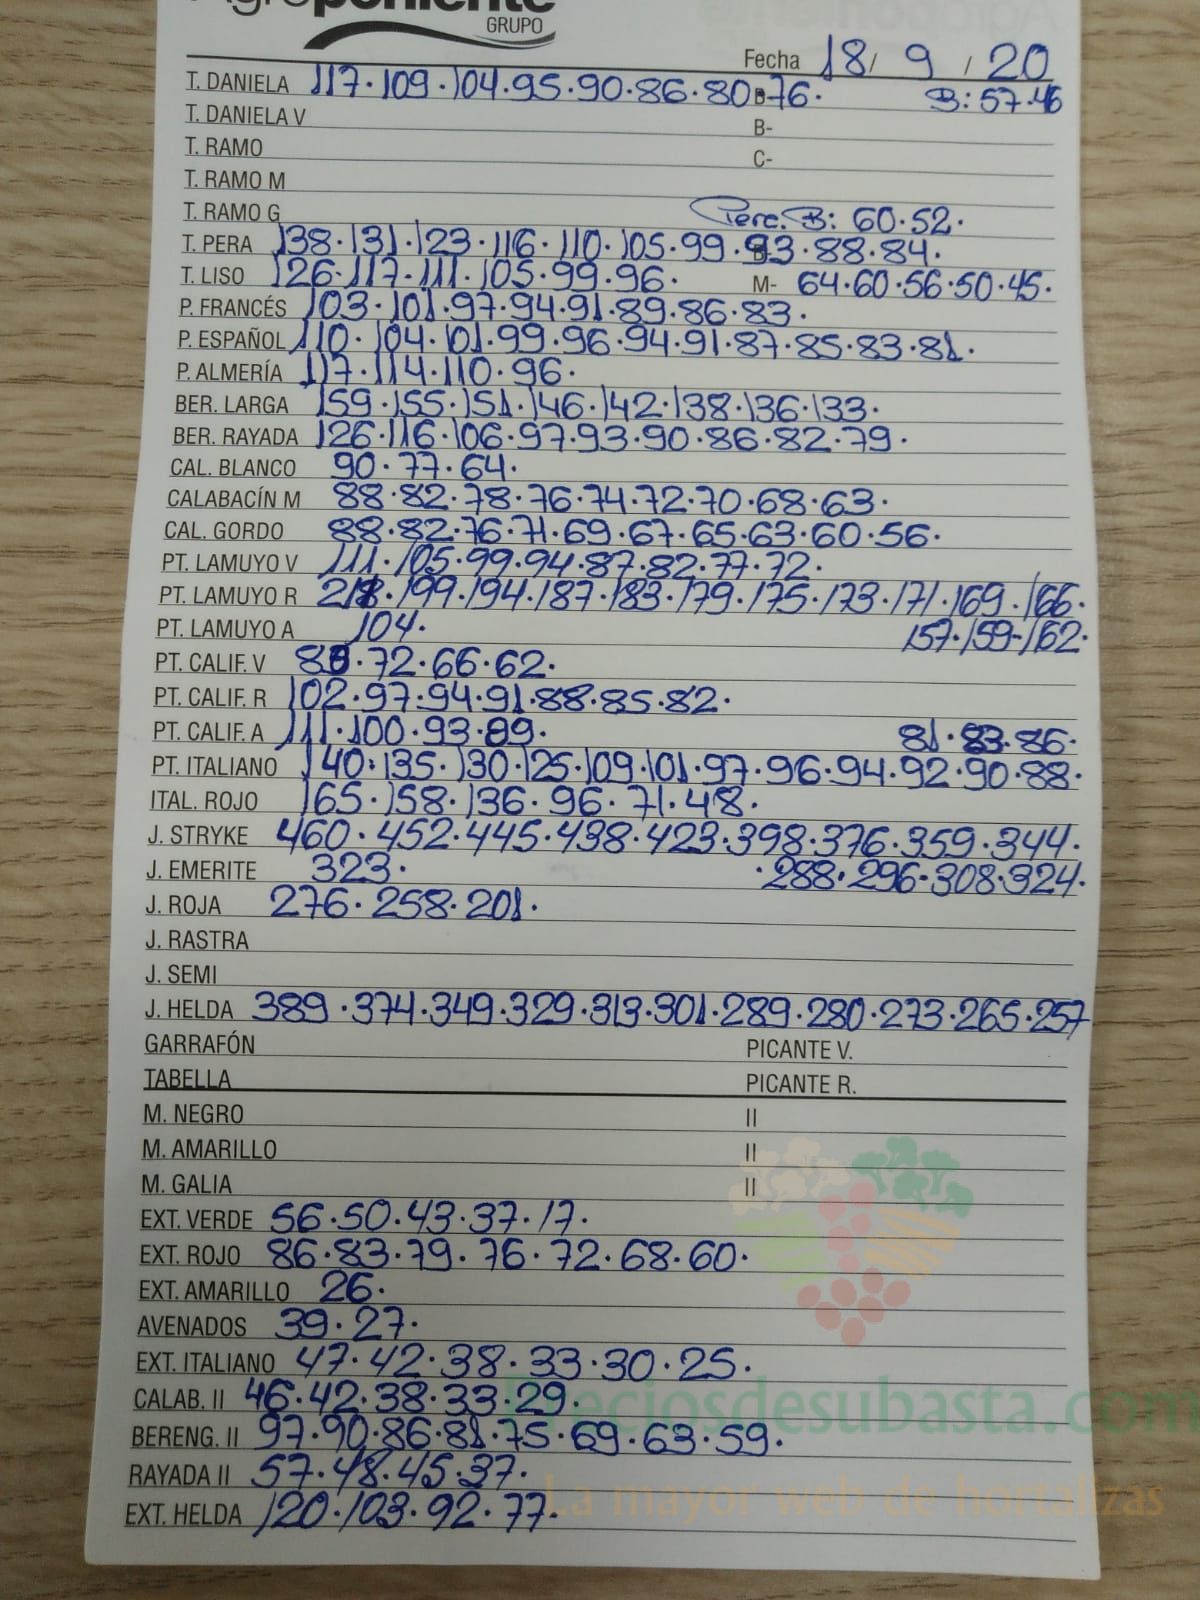 Agroponiente
GRUPO
Fecha 18/ 9 / 20
T. DANIELA 117·109·104·95·90·86·80·76· B: 57·46
T. DANIELA V B-
T. RAMO C-
T. RAMO M
T. RAMO G Pera. B: 60·52·
T. PERA 138·131·123·116·110·105·99·93·88·84·
T. LISO 126·117·111·105·99·96· M- 64·60·56·50·45·
P. FRANCÉS 103·101·97·94·91·89·86·83·
P. ESPAÑOL 110·104·101·99·96·94·91·87·85·83·81·
P. ALMERÍA 117·114·110·96·
BER. LARGA 159·155·151·146·142·138·136·133·
BER. RAYADA 126·116·106·97·93·90·86·82·79·
CAL. BLANCO 90·77·64·
CALABACÍN M 88·82·78·76·74·72·70·68·63·
CAL. GORDO 88·82·76·71·69·67·65·63·60·56·
PT. LAMUYO V 111·105·99·94·87·82·77·72·
PT. LAMUYO R 199·194·187·183·179·175·173·171·169·166·
PT. LAMUYO A 104· 157·159-162·
PT. CALIF. V 72·66·62·
PT. CALIF. R 102·97·94·91·88·85·82·
PT. CALIF. A 111·100·93·89· 81·83·86·
PT. ITALIANO 140·135·130·125·109·101·97·96·94·92·90·88·
ITAL. ROJO 165·158·136·96·71·48·
J. STRYKE 460·452·445·438·423·398·376·359·344·
J. EMERITE 323· ·288·296·308·324·
J. ROJA 276·258·201·
J. RASTRA
J. SEMI
J. HELDA 389·374·349·329·313·301·289·280·273·265·257
GARRAFÓN PICANTE V.
TABELLA PICANTE R.
M. NEGRO II
M. AMARILLO II
M. GALIA II
EXT. VERDE 56·50·43·37·17·
EXT. ROJO 86·83·79·76·72·68·60·
EXT. AMARILLO 26·
AVENADOS 39·27·
EXT. ITALIANO 47·42·38·33·30·25·
CALAB. II 46·42·38·33·29·
Preciosdesubasta.com
BERENG. II 97·90·86·81·75·69·63·59·
RAYADA II 57·48·45·37·
La mayor web de hortalizas
EXT. HELDA 120·103·92·77·